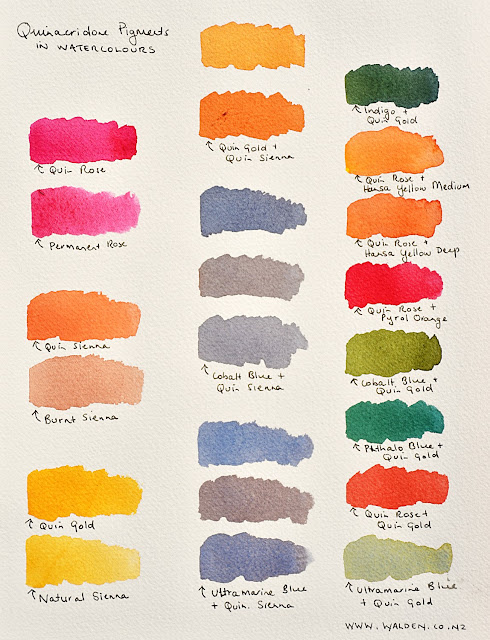 Quinacridone Pigments
IN WATERCOLOURS
↑ Quin Rose
↑ Permanent Rose
↑ Quin Sienna
↑ Burnt Sienna
↑ Quin Gold
↑ Natural Sienna
↑ Quin Gold +
Quin Sienna
↑ Cobalt Blue +
Quin Sienna
↑ Ultramarine Blue
+ Quin. Sienna
↑ Indigo +
Quin Gold
↑ Quin Rose +
Hansa Yellow Medium
↑ Quin Rose +
Hansa Yellow Deep
↑ Quin Rose +
Pyrol Orange
↑ Cobalt Blue +
Quin Gold
↑ Phthalo Blue +
Quin Gold
↑ Quin Rose +
Quin Gold
↑ Ultramarine Blue
+ Quin Gold
WWW.WALDEN.CO.NZ